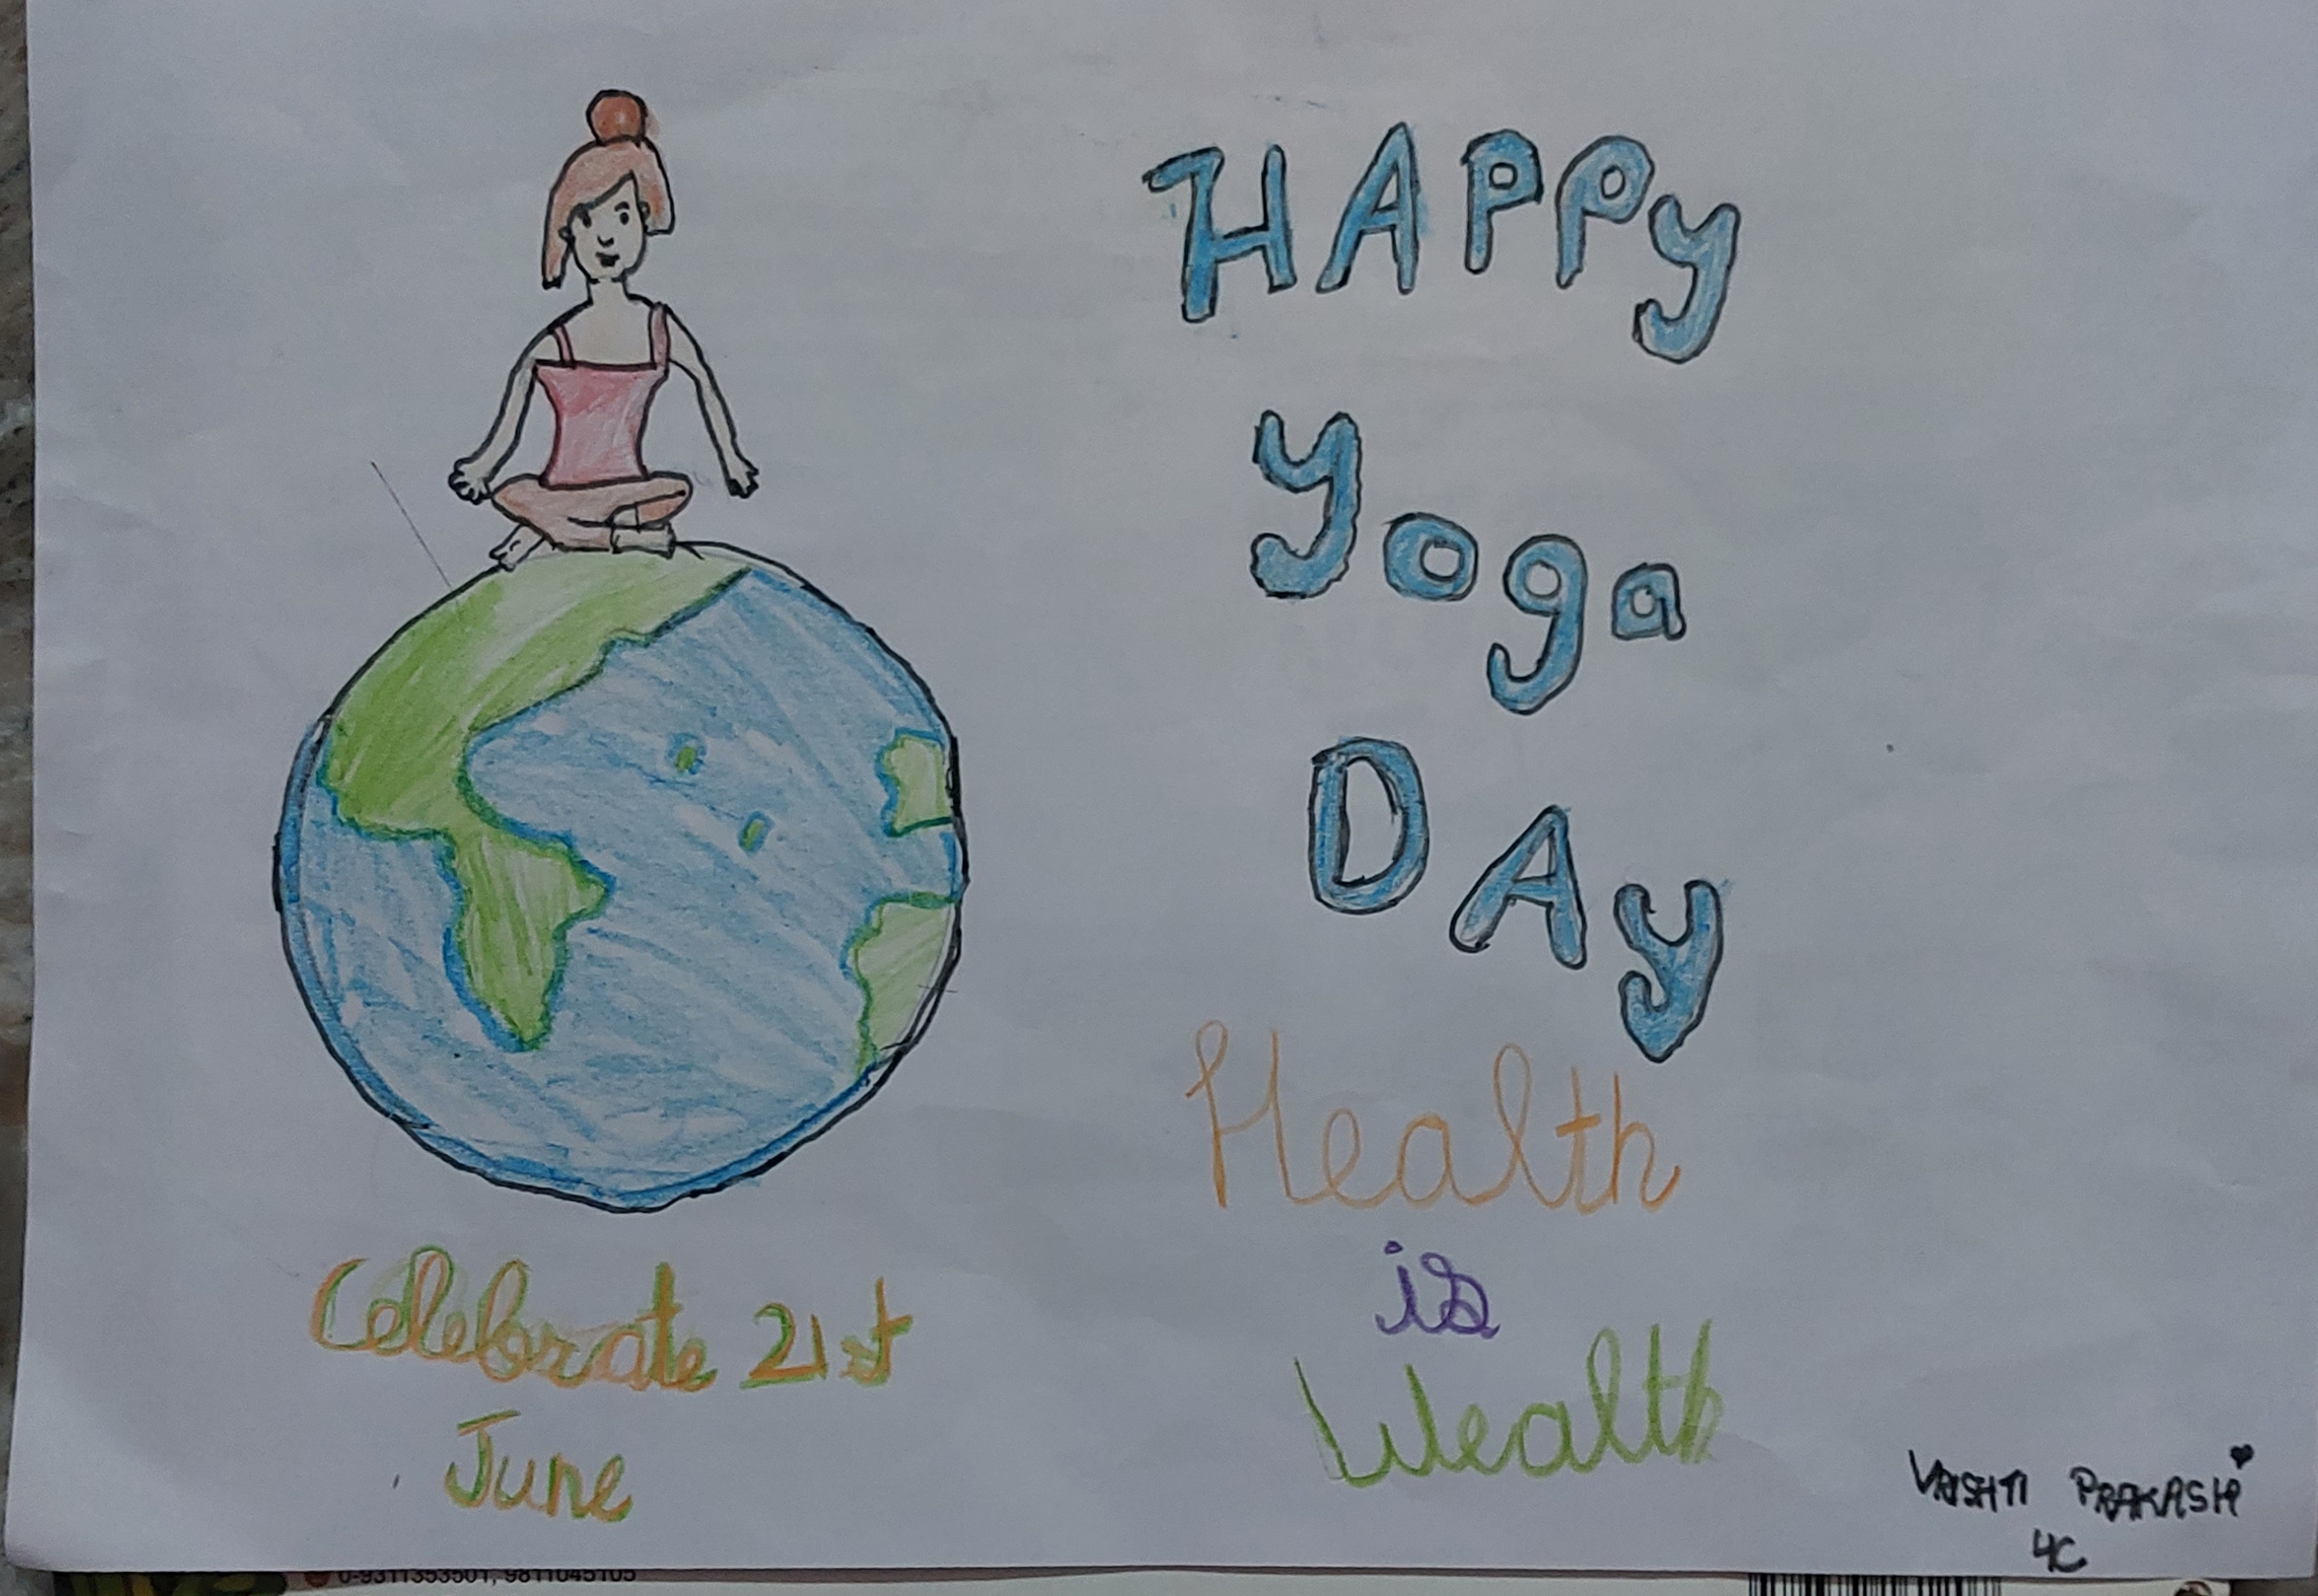 HAPPy
yoga
DAy
Health
is
Wealth
Celebrate 21st
June
VRISHTI PRAKASH
4C
0-9311353501, 9811045105